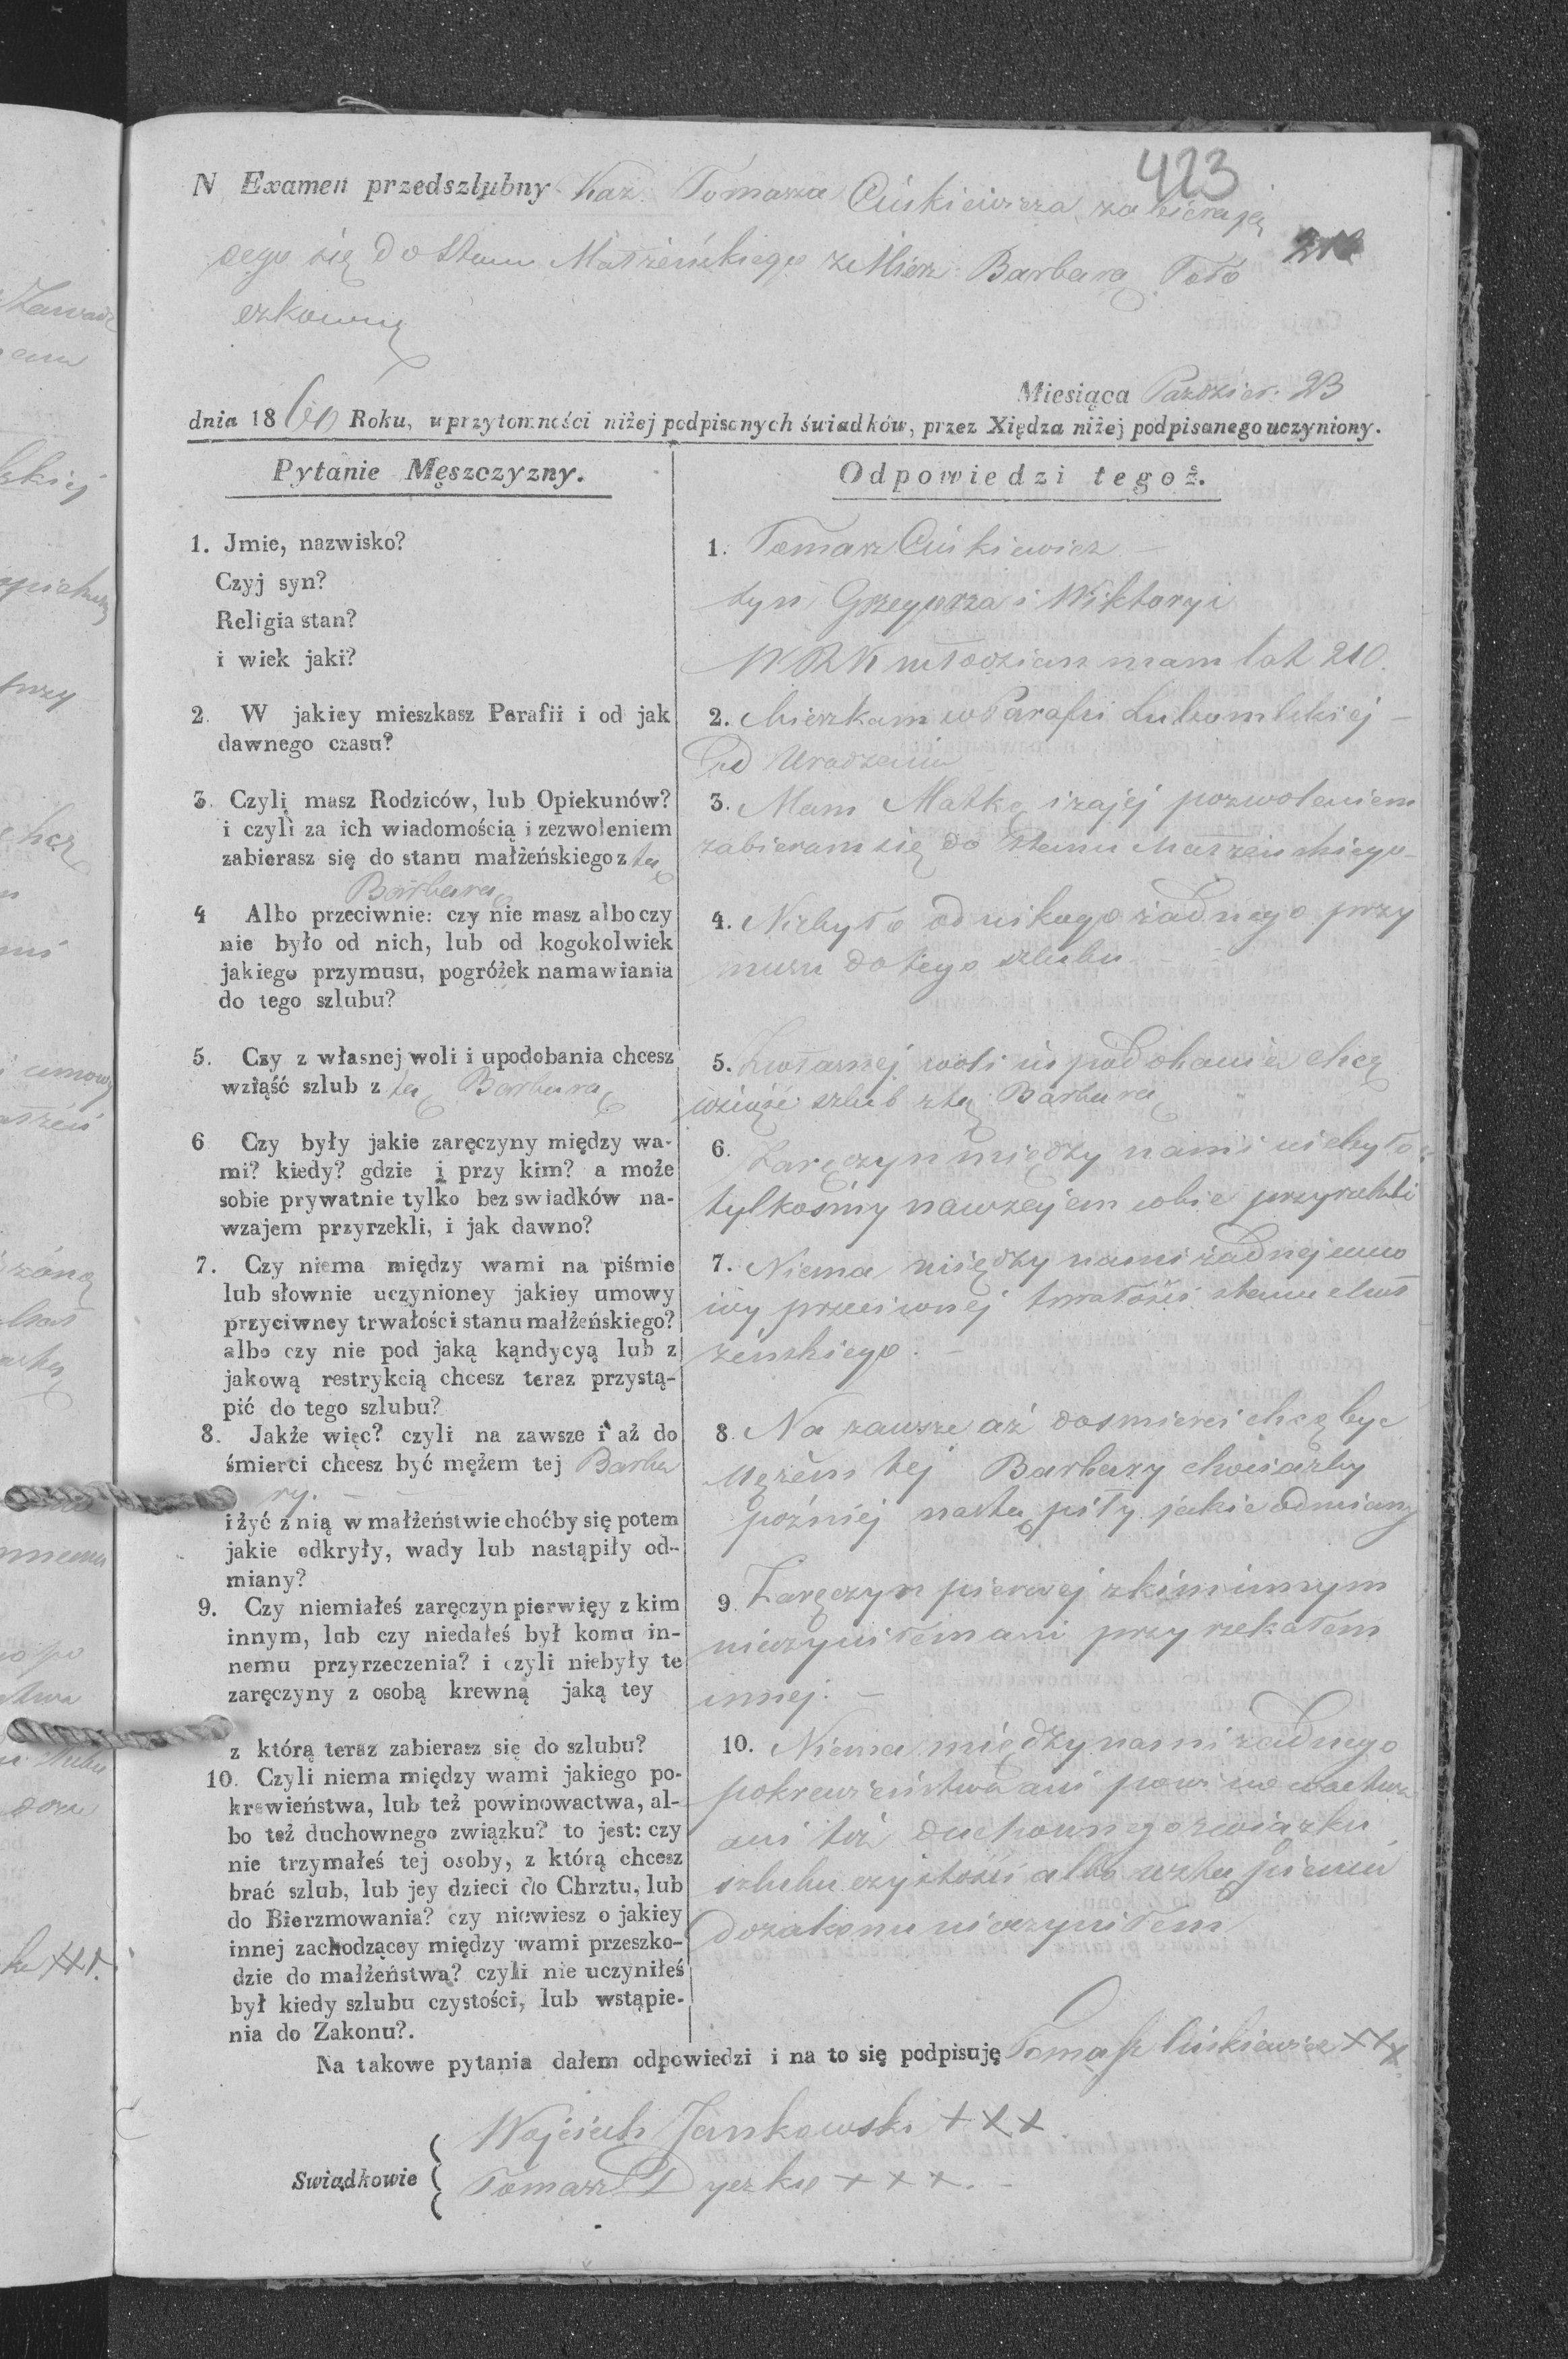 423
N Examen przedszlubny Kaz. Tomasza Cuskiewicza zabierają
cego się do Stanu Małżeńskiego z Mierz. Barbarą Toło
czkowną
Miesiąca Paździer. 23
dnia 18 60 Roku, w przytomności niżej podpisanych świadków, przez Xiędza niżej podpisanego uczyniony.
Pytanie Męszczyzny.
1. Jmie, nazwisko?
Czyj syn?
Religia stan?
i wiek jaki?
2. W jakiey mieszkasz Parafii i od jak
dawnego czasu?
3. Czyli masz Rodziców, lub Opiekunów?
i czyli za ich wiadomością i zezwoleniem
zabierasz się do stanu małżeńskiego z tą
Barbarą
4 Albo przeciwnie: czy nie masz albo czy
nie było od nich, lub od kogokolwiek
jakiego przymusu, pogróżek namawiania
do tego szlubu?
5. Czy z własnej woli i upodobania chcesz
wziąść szlub z tą Barbarą
6 Czy były jakie zaręczyny między wa-
mi? kiedy? gdzie i przy kim? a może
sobie prywatnie tylko bez swiadków na-
wzajem przyrzekli, i jak dawno?
7. Czy niema między wami na piśmie
lub słownie uczynioney jakiey umowy
przyciwney trwałości stanu małżeńskiego?
albo czy nie pod jaką kąndycyą lub z
jakową restrykcią chcesz teraz przystą-
pić do tego szlubu?
8. Jakże więc? czyli na zawsze i aż do
śmierci chcesz być mężem tej Barba
ry.
i żyć z nią w małżeństwie choćby się potem
jakie odkryły, wady lub nastąpiły od-
miany?
9. Czy niemiałeś zaręczyn pierwięy z kim
innym, lub czy niedałeś był komu in-
nemu przyrzeczenia? i czyli niebyły te
zaręczyny z osobą krewną jaką tey
z którą teraz zabierasz się do szlubu?
10. Czyli niema między wami jakiego po-
krewieństwa, lub też powinowactwa, al-
bo też duchownego związku? to jest: czy
nie trzymałeś tej osoby, z którą chcesz
brać szlub, lub jey dzieci do Chrztu, lub
do Bierzmowania? czy niewiesz o jakiey
innej zachodzącey między wami przeszko-
dzie do małżeństwa? czyli nie uczyniłeś
był kiedy szlubu czystości, lub wstąpie-
nia do Zakonu?.
Odpowiedzi tegoż.
1. Tomasz Cuskiewicz
syn Grzegorza i Wiktoryi
W R K młodzian mam lat
2. Mieszkam w Parafii
Od Urodzenia
3. Mam Matkę i zajej pozwoleniem
zabieram się do Stanu Małżeńskiego
4. Niebyło od nikogo żadnego przy
musu do tego szlubu
5. Zwłasnej woli i upodobania chcę
wziąść szlub z tą Barbarą
6. Zaręczyn między nami niebyło
tylkośmy nawzajem sobie przyrzekli
7. Niema między nami żadnej umo
wy przeciwnej trwałości stanu Mał
żeńskiego.
8. Na zawsze aż do śmierci chcę być
Mężem tej Barbary chociażby
później nastąpiły jakie odmiany
9. Zaręczyn pierwej z kim innym
nieczyniłem ani przyrzekałem
innej.
10. Niema między nami żadnego
pokrewieństwa ani powinowactwa
ani też duchownego związku
szlubu czystości albo wstąpienia
do zakonu nieczyniłem
Na takowe pytania dałem odpowiedzi i na to się podpisuję Tomasz Cuskiewicz +++
Wojciech Jankowski +++
Swiadkowie
Tomasz Dyczko +++.